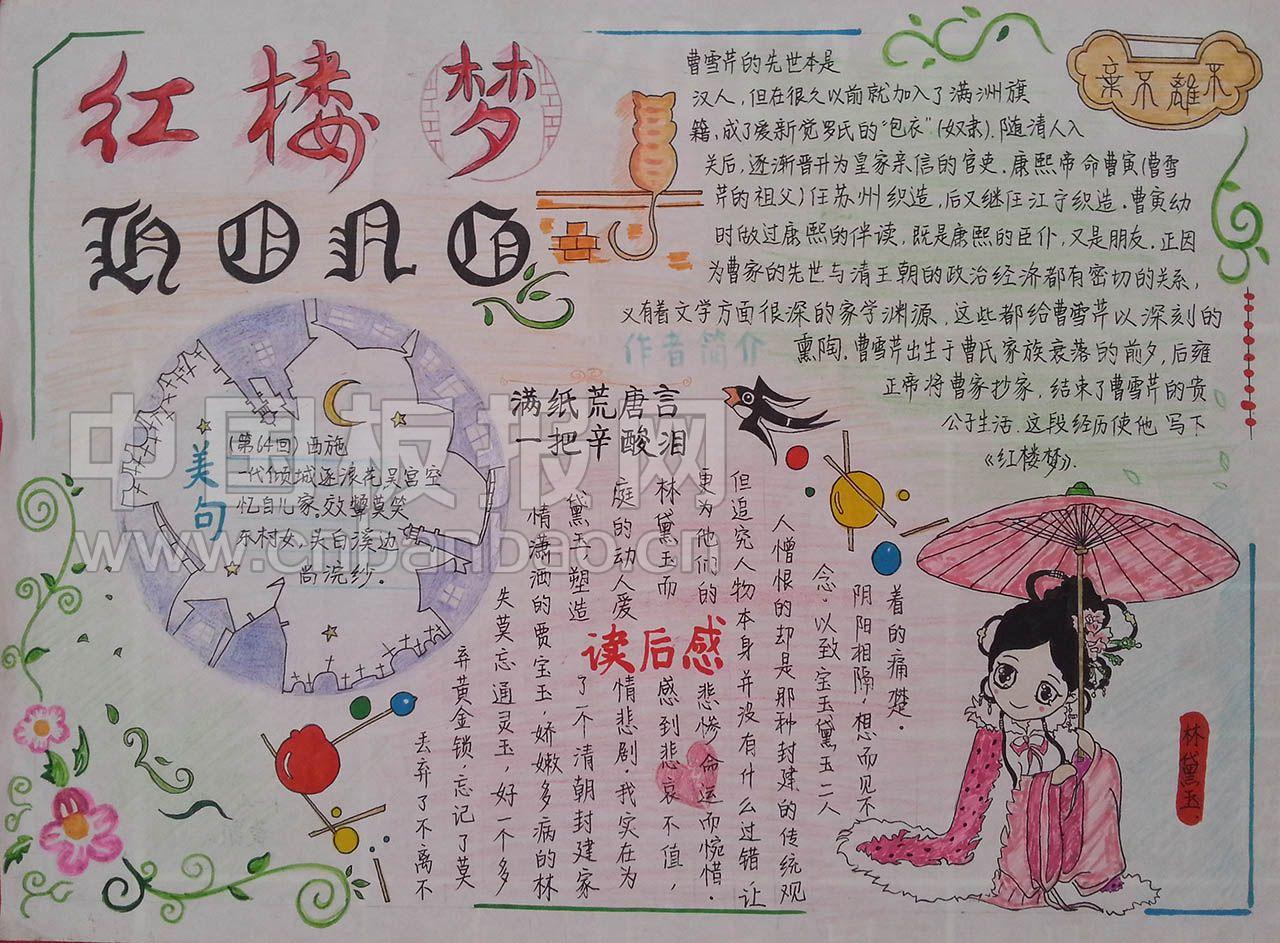 红楼梦
HONG
棄不離不
曹雪芹的先世本是
汉人，但在很久以前就加入了满洲旗
籍，成了爱新觉罗氏的“包衣”(奴隶).随清人入
关后，逐渐晋升为皇家亲信的官吏.康熙帝命曹寅(曹雪
芹的祖父)任苏州织造，后又继任江宁织造.曹寅幼
时做过康熙的伴读，既是康熙的臣仆，又是朋友.正因
为曹家的先世与清王朝的政治经济都有密切的关系，
又有着文学方面很深的家学渊源，这些都给曹雪芹以深刻的
熏陶.曹雪芹出生于曹氏家族衰落的前夕，后雍
正帝将曹家抄家，结束了曹雪芹的贵
公子生活.这段经历使他写下
《红楼梦》.
作者简介
满纸荒唐言
一把辛酸泪
美句
(第64回)西施
一代倾城逐浪花吴宫空
忆自儿家。效颦莫笑
东村女，头白溪边
尚浣纱。
读后感
丢弃了不离不
弃黄金锁，忘记了莫
失莫忘通灵玉，好一个多
情潇洒的贾宝玉，娇嫩多病的林
黛玉塑造
了一个清朝封建家
庭的动人爱
情悲剧.我实在为
林黛玉而
感到悲哀不值，
更为他们的
悲惨命运而惋惜.
但追究人物本身并没有什么过错让
人憎恨的却是那种封建的传统观
念.以致宝玉黛玉二人
阴阳相隔，想而见不
着的痛楚.
林黛玉.
中国板报网
www.cnbanbao.cn